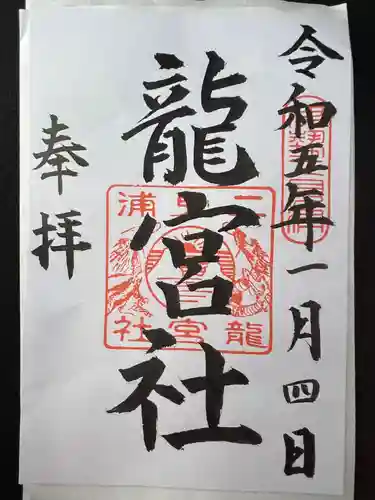 令和五年一月四日
龍宮社
奉拝
二見浦
龍宮社